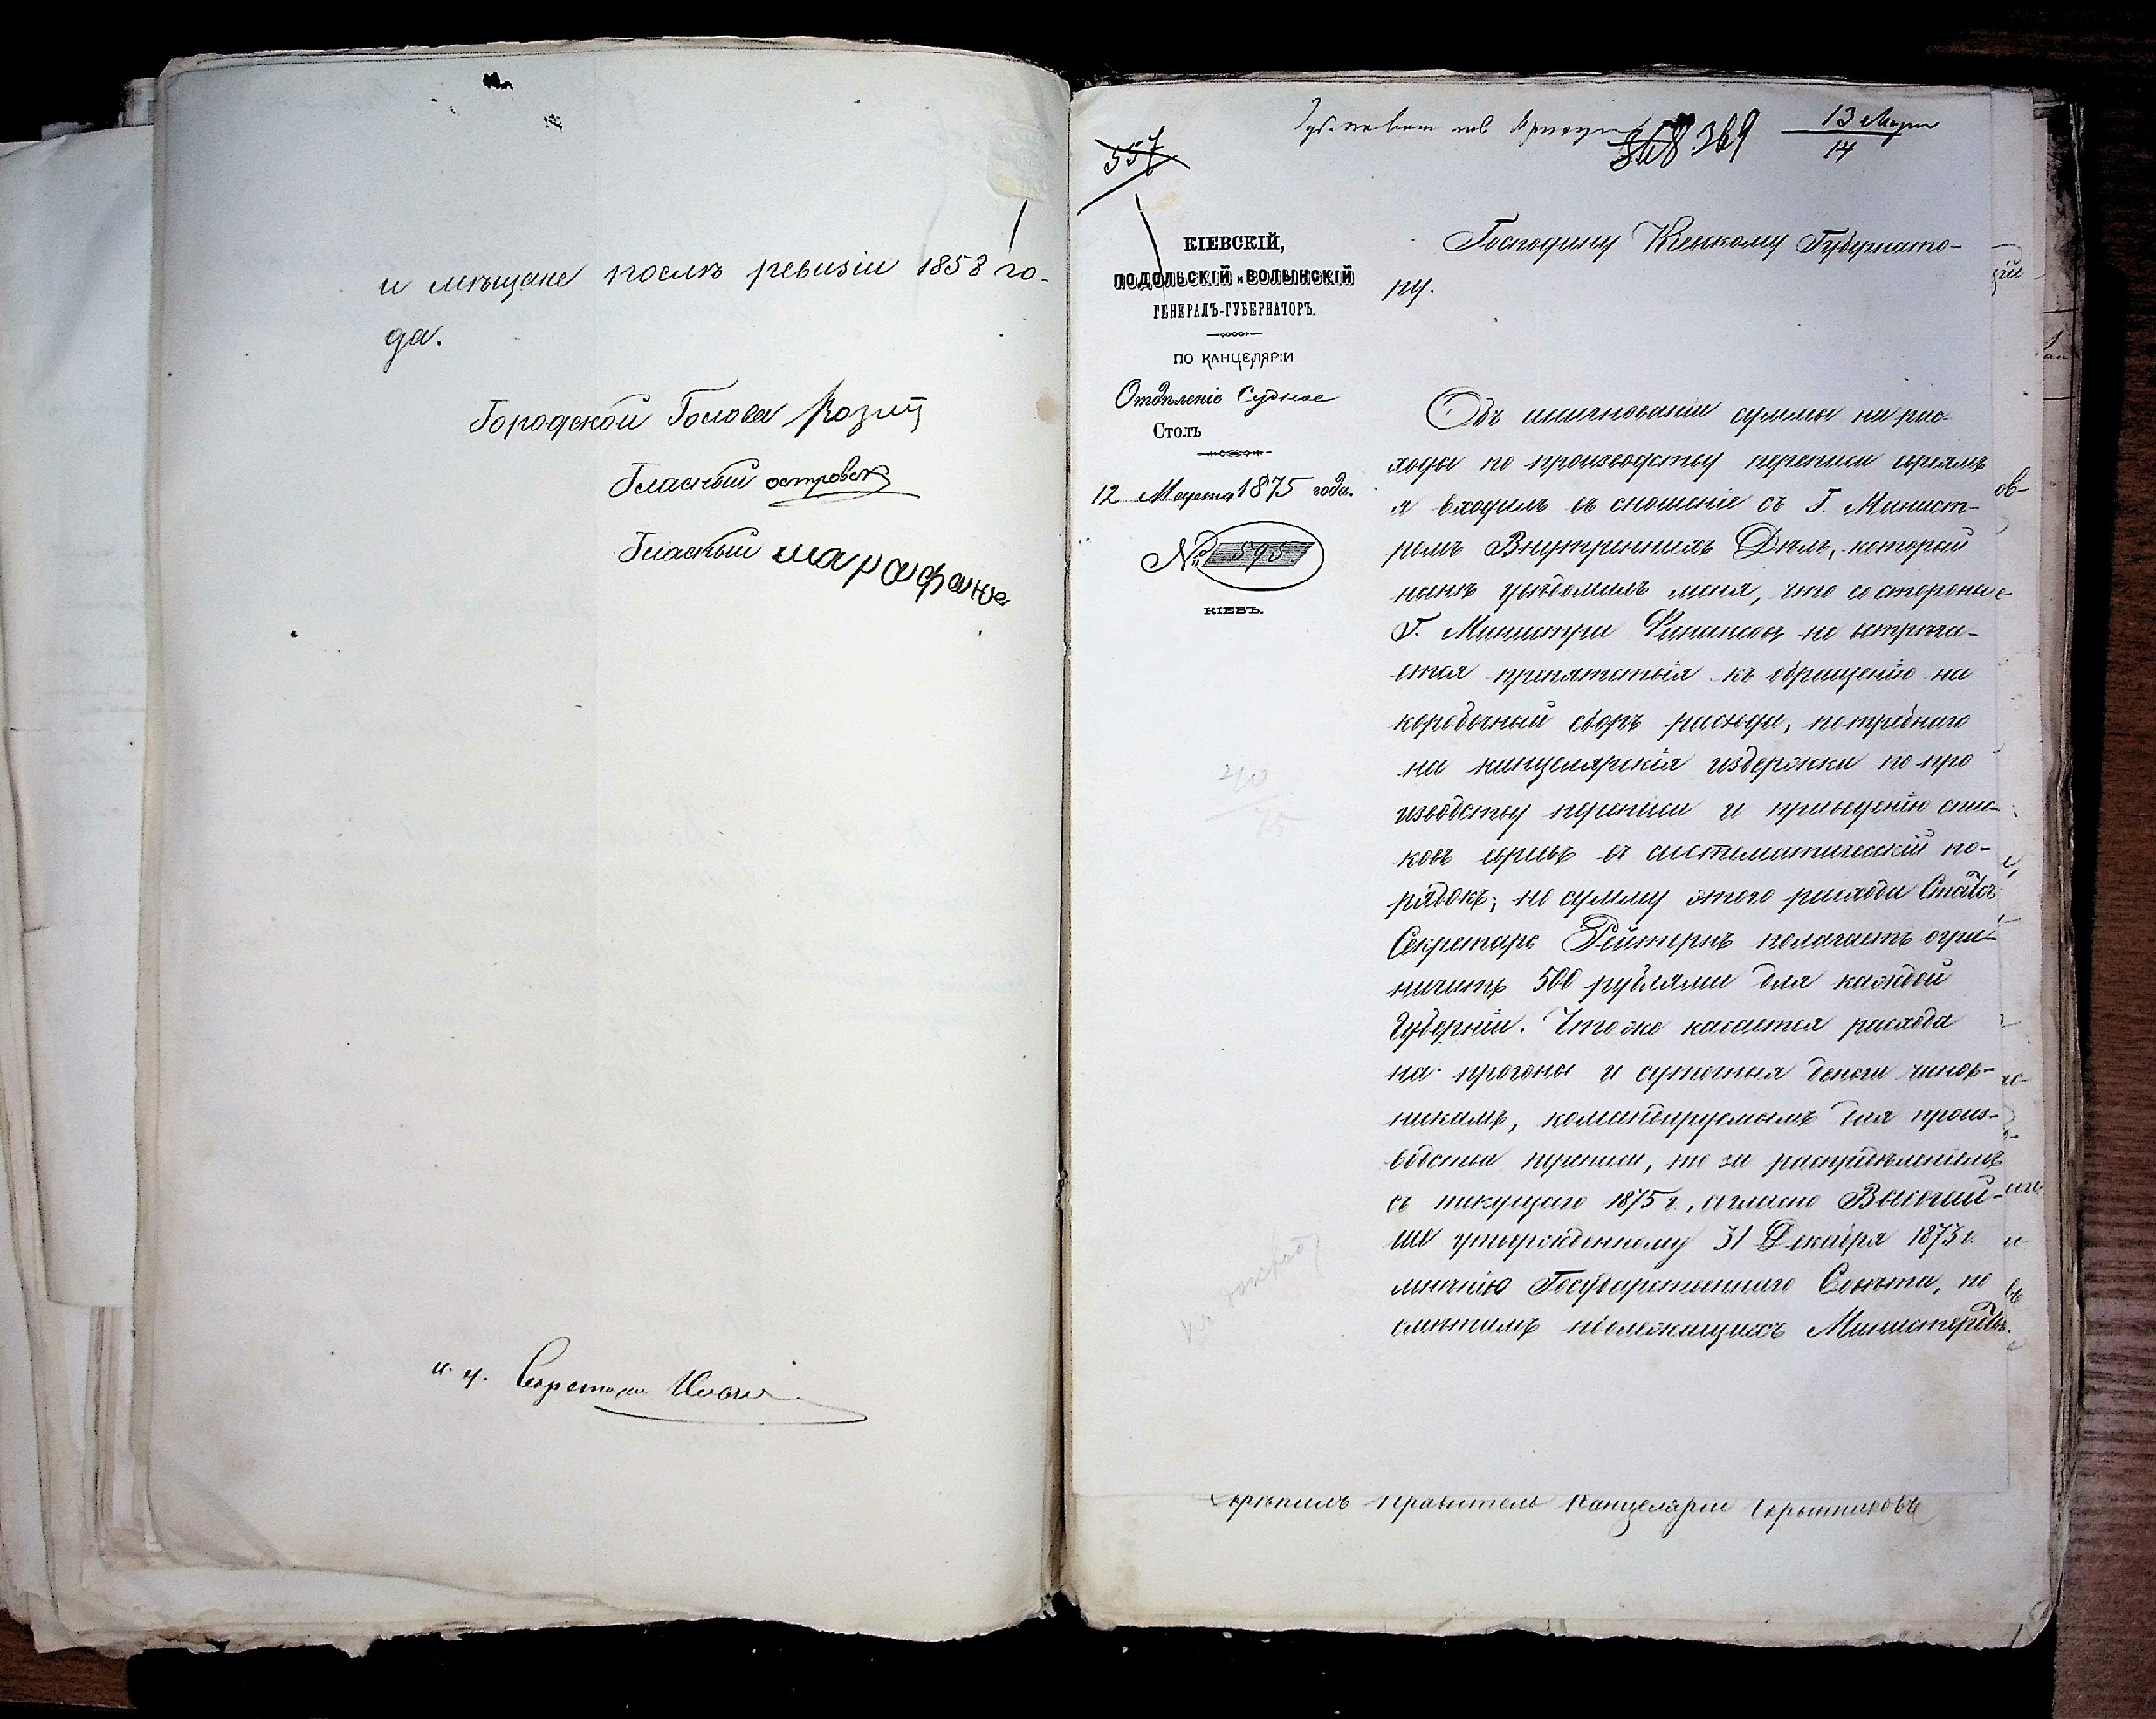 и мѣщане послѣ ревизіи 1858 го-
да.
Городской Голова
Гласный
Гласный
и. д. Секретаря
557
368 369
13 Марта
14
КІЕВСКІЙ,
ПОДОЛЬСКІЙ и ВОЛЫНСКІЙ
ГЕНЕРАЛЪ-ГУБЕРНАТОРЪ.
ПО КАНЦЕЛЯРІИ
Отдѣленіе Судное
Столъ
12 Марта 1875 года.
№ 595
КІЕВЪ.
Господину Кіевскому Губернато-
ру.
Объ ассигнованіи суммы на рас-
ходы по производству переписи евреямъ
я входилъ въ сношеніе съ Г. Минист-
ромъ Внутреннихъ Дѣлъ, который
нынѣ увѣдомилъ меня, что со стороны
Г. Министра Финансовъ не встрѣча-
ется препятствія къ обращенію на
коробочный сборъ расхода, потребнаго
на канцелярскія издержки по про
изводству переписи и приведенію спис-
ковъ евреевъ въ систематическій по-
рядокъ; но сумму этого расхода Статсъ-
Секретарь Рейтернъ полагаетъ огра-
ничить 500 рублями для каждой
Губерніи. Что же касается расхода
на прогоны и суточныя деньги чинов-
никамъ, командируемымъ для произ-
водства переписи, то за распредѣленіемъ
съ текущаго 1875 г., согласно Высочай-
ше утвержденному 31 Декабря 1873 г.
мнѣнію Государственнаго Совѣта, по
смѣтамъ подлежащихъ Министерствъ
Скрѣпилъ Правитель Канцеляріи